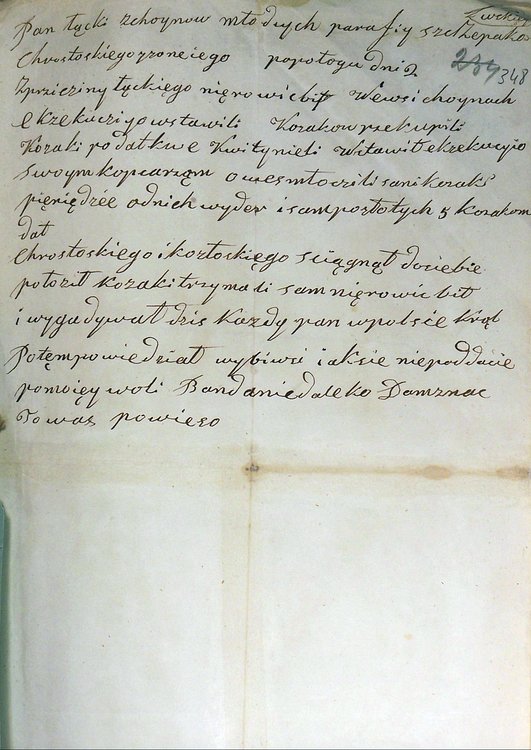 Zwckie
Pan Łącki zchoynow młodych parafiy szczepakow
289 348
Chrostoskiego zrone iego popołogu dni 2
Zprzicziny Łąckiego nięrowic bił Wewsi choynach
ekzekucziyo wstawili Kozakow rzekupili
Kozaki podatkue Kwitynieli Wstawił ekzekucyio
Swoym kopcarząm owies młoczili sani kozak
pięniędzée odnich wyder i sam poztotych 5 kozakom
dał
Chrostoskiego i kozłoskięgo sciągnął dosiebie
położił kozaki trzymali sam nięrowic bił
i wygadywał dzis każdy pan wpolsce król
Potęmpowiedział wybiwsi iaksie niepoddacie
pomoięy woli Banda niedaleko Damznac
To was powieso